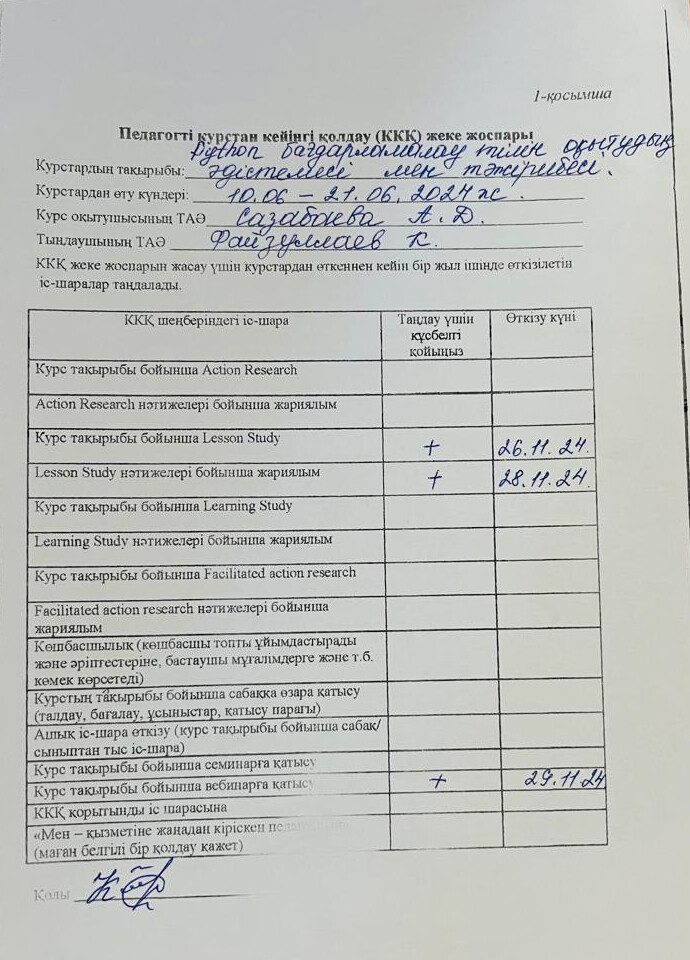 1-қосымша
Педагогті курстан кейінгі қолдау (ККҚ) жеке жоспары
Курстардың тақырыбы: Python бағдарламалау тілін оқытудың
әдістемесі мен тәжірибесі.
Курстардан өту күндері: 10.06 – 21.06.2024 ж.
Курс оқытушысының ТАӘ Сазабаева А.Д.
Тыңдаушының ТАӘ Файзуллаев К.
ККҚ жеке жоспарын жасау үшін курстардан өткеннен кейін бір жыл ішінде өткізілетін
іс-шаралар таңдалады.
ККҚ шеңберіндегі іс-шара Таңдау үшін құсбелгі қойыңыз Өткізу күні
Курс тақырыбы бойынша Action Research
Action Research нәтижелері бойынша жариялым
Курс тақырыбы бойынша Lesson Study + 26.11.24.
Lesson Study нәтижелері бойынша жариялым + 28.11.24.
Курс тақырыбы бойынша Learning Study
Learning Study нәтижелері бойынша жариялым
Курс тақырыбы бойынша Facilitated action research
Facilitated action research нәтижелері бойынша
жариялым
Көшбасшылық (көшбасшы топты ұйымдастырады
және әріптестеріне, бастаушы мұғалімдерге және т.б.
көмек көрсетеді)
Курстың тақырыбы бойынша сабаққа өзара қатысу
(талдау, бағалау, ұсыныстар, қатысу парағы)
Ашық іс-шара өткізу (курс тақырыбы бойынша сабақ/
сыныптан тыс іс-шара)
Курс тақырыбы бойынша семинарға қатысу
Курс тақырыбы бойынша вебинарға қатысу + 29.11.24
ККҚ қорытынды іс шарасына
«Мен – қызметіне жаңадан кіріскен
(маған белгілі бір қолдау қажет)
Қолы